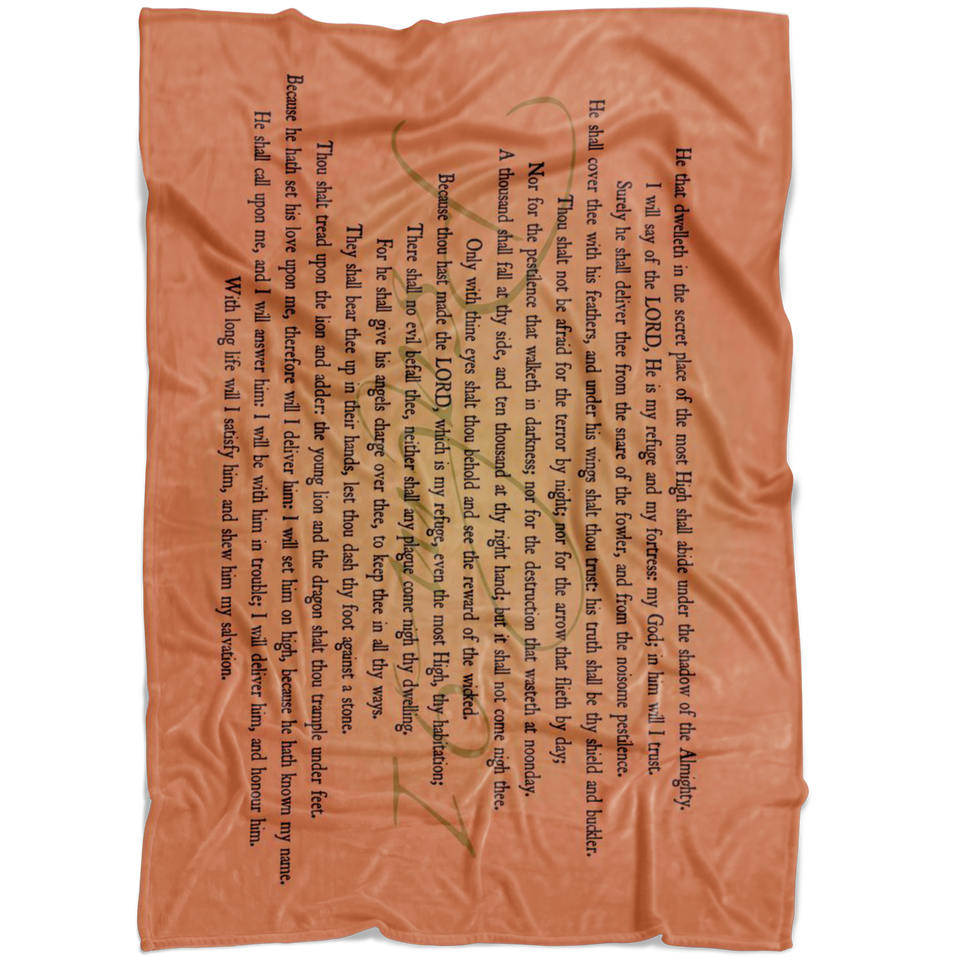 He that dwelleth in the secret place of the most High shall abide under the shadow of the Almighty.
I will say of the LORD, He is my refuge and my fortress: my God; in him will I trust.
Surely he shall deliver thee from the snare of the fowler, and from the noisome pestilence.
He shall cover thee with his feathers, and under his wings shalt thou trust: his truth shall be thy shield and buckler.
Thou shalt not be afraid for the terror by night; nor for the arrow that flieth by day;
Nor for the pestilence that walketh in darkness; nor for the destruction that wasteth at noonday.
A thousand shall fall at thy side, and ten thousand at thy right hand; but it shall not come nigh thee.
Only with thine eyes shalt thou behold and see the reward of the wicked.
Because thou hast made the LORD, which is my refuge, even the most High, thy habitation;
There shall no evil befall thee, neither shall any plague come nigh thy dwelling.
For he shall give his angels charge over thee, to keep thee in all thy ways.
They shall bear thee up in their hands, lest thou dash thy foot against a stone.
Thou shalt tread upon the lion and adder: the young lion and the dragon shalt thou trample under feet.
Because he hath set his love upon me, therefore will I deliver him: I will set him on high, because he hath known my name.
He shall call upon me, and I will answer him: I will be with him in trouble; I will deliver him, and honour him.
With long life will I satisfy him, and shew him my salvation.